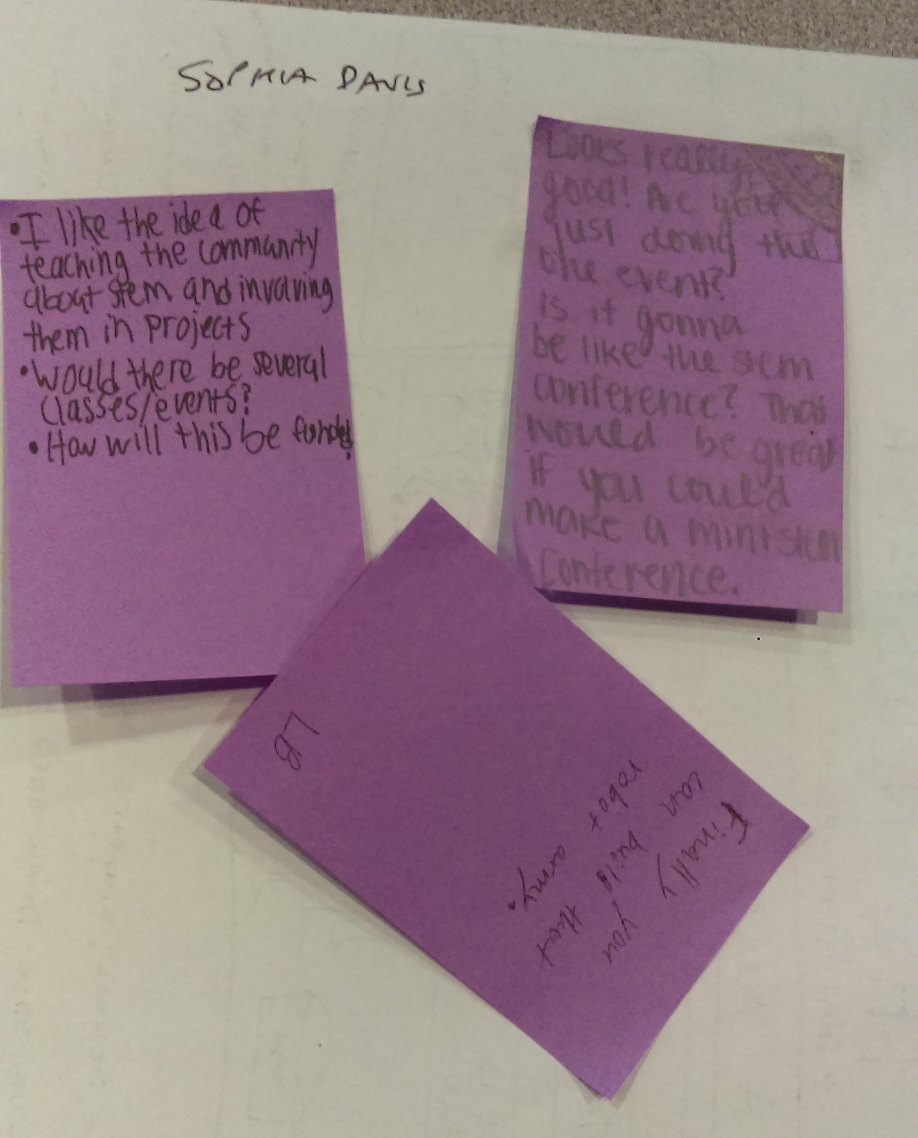 SOPHIA DAVIS
•I like the idea of
teaching the community
about stem and involving
them in projects
•Would there be several
classes/events?
•How will this be funded?
Looks really
good! Are you
just doing the
one event?
is it gonna
be like the stem
conference? That
would be great
if you could
make a mini stem
conference.
Finally you
can build that
robot army.
LB